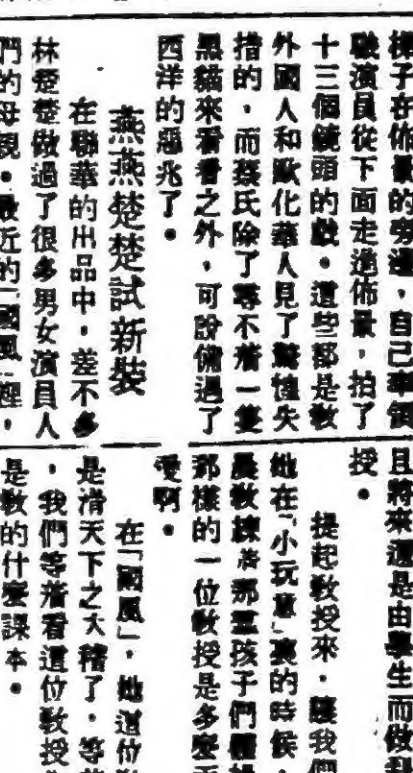 梯子在佈景的旁邊，自己率領
駿演員從下面走進佈景，拍了
十三個鏡頭的戲。這些都是教
外國人和歐化華人見了驚惶失
措的，而蔡氏除了尋不着一隻
黑貓來看看之外，可說備遇了
西洋的惡兆了。
燕燕楚楚試新裝
在聯華的出品中，差不多
林楚楚做過了很多男女演員人
們的母親。最近的「國風」裡，
且將來還是由學生而做
授。
提起教授來，讓我們
她在「小玩意」裏的時候，
教練着那羣孩子們
那樣的一位教授是多麼
愛啊。
在「國風」，她這位
是滑天下之大稽了。等
，我們等着看這位教授
是教的什麼課本。